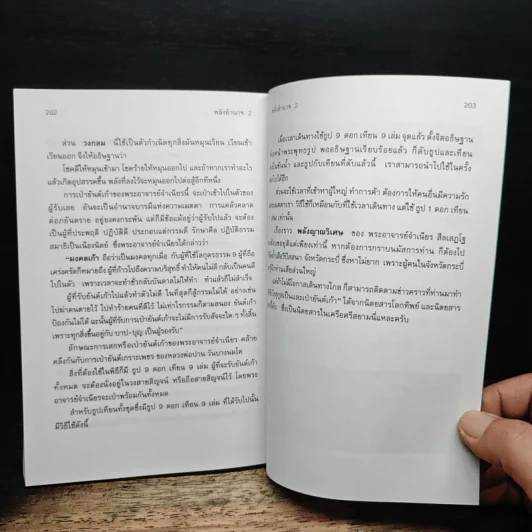 202
พลังอำนาจ 2
ส่วน วงกลม นี้ใช้เป็นตัวกำเนิดทุกสิ่งมันหมุนเวียน เวียนเข้า
เวียนออก จึงให้อธิษฐานว่า
โชคดีให้หมุนเข้ามา โชคร้ายให้หมุนออกไป และถ้าหากเราทำอะไร
แล้วเกิดอุปสรรคขึ้น พลังที่ลงไว้จะหมุนออกไปต่อสู้อีกทีหนึ่ง
การเป่ายันต์เก้าของพระอาจารย์จำเนียรนี้ จะเป่าเข้าไปในตัวของ
ผู้รับเลย อันจะเป็นอำนาจบารมีแห่งความเมตตา การแคล้วคลาด
ต่อภยันตราย อยู่ยงคงกระพัน แต่ก็มีข้อแม้อยู่ว่าผู้รับไปแล้ว จะต้อง
เป็นผู้ที่ประพฤติ ปฏิบัติดี ประกอบแต่กรรมดี รักษาศีล ปฏิบัติธรรม
สมาธิเป็นเนืองนิตย์ ซึ่งพระอาจารย์จำเนียรได้กล่าวว่า
"มงคลเก้า ถือว่าเป็นมงคลทุกเมื่อ กับผู้ที่ใช้โลกุตรธรรม 9 ผู้ที่
เคร่งครัดก็หมายถึง ผู้ที่ก้าวไปถึงความบริสุทธิ์ ทำให้คนไม่ดี กลับเป็นคนดี
ไปในตัว เพราะเวลาจะทำชั่วกลับบันดาลไม่ให้ทำ ทำแล้วก็ไม่สำเร็จ
ผู้ที่รับยันต์เก้าไปแล้วทำตัวไม่ดี ในที่สุดก็สู้กรรมไม่ได้ อย่างเช่น
ไปฆ่าคนตายไว้ ไปทำร้ายคนที่ดีไว้ ไม่เท่าไรกรรมก็ตามสนอง ยันต์เก้า
ป้องกันไม่ได้ ฉะนั้นผู้ที่รับการเป่ายันต์เก้าจะไม่มีการรับสัจจะใด ๆ ทั้งสิ้น
เพราะทุกสิ่งนี้ขึ้นอยู่กับ บาป-บุญ เป็นผู้รองรับ"
ลักษณะการเสกหรือเป่ายันต์เก้าของพระอาจารย์จำเนียร คล้าย
คลึงกันกับการเป่ายันต์เกราะเพชร ของหลวงพ่อปาน วัดบางนมโค
สิ่งที่ต้องใช้ในพิธีก็มี ธูป 9 ดอก เทียน 9 เล่ม ผู้ที่จะรับยันต์เก้า
ทั้งหมด จะต้องนั่งอยู่ในวงสายสิญจน์ หรือถือสายสิญจน์ไว้ โดยพระ
อาจารย์จำเนียรจะเป่าพร้อมกันทั้งหมด
สำหรับธูปเทียนทั้งชุดซึ่งมีธูป 9 ดอก เทียน 9 เล่ม ที่ได้รับไปนั้น
มีวิธีใช้ดังนี้
พลังอำนาจ 2
203
เมื่อเวลาเดินทางใช้ธูป 9 ดอก เทียน 9 เล่ม จุดแล้ว ตั้งจิตอธิษฐาน
หน้าพระพุทธรูป พออธิษฐานเรียบร้อยแล้ว ก็ดับธูปและเทียน
น้ำมัน และธูปกับเทียนที่ดับแล้วนี้ เราสามารถนำไปใช้ในครั้ง
ได้อีก
ส่วนจะใช้เวลาที่เข้าหาผู้ใหญ่ ทำการค้า ต้องการให้คนอื่นมีความรัก
เมตตาเรา วิธีใช้ก็เหมือนกับที่ใช้เวลาเดินทาง แต่ใช้ ธูป 1 ดอก เทียน
เล่ม เท่านั้น
เรื่องราว พลังญาณวิเศษ ของ พระอาจารย์จำเนียร สีลเสฏโฐ
ยุติแต่เพียงเท่านี้ หากต้องการกราบนมัสการท่าน ก็ต้องไป
วิปัสสนา จังหวัดกระบี่ ซึ่งหาไม่ยาก เพราะผู้คนในจังหวัดกระบี่
รู้จักท่านเสียส่วนใหญ่
แต่ถ้าไม่มีโอกาสเดินทางไกล ก็สามารถติดตามข่าวคราวที่ท่านมาทำ
และเป่ายันต์เก้า" ได้จากนิตยสารโลกทิพย์ และนิตยสาร
ซึ่งเป็นนิตยสารในเครือศรีสยามนี่แหละครับ